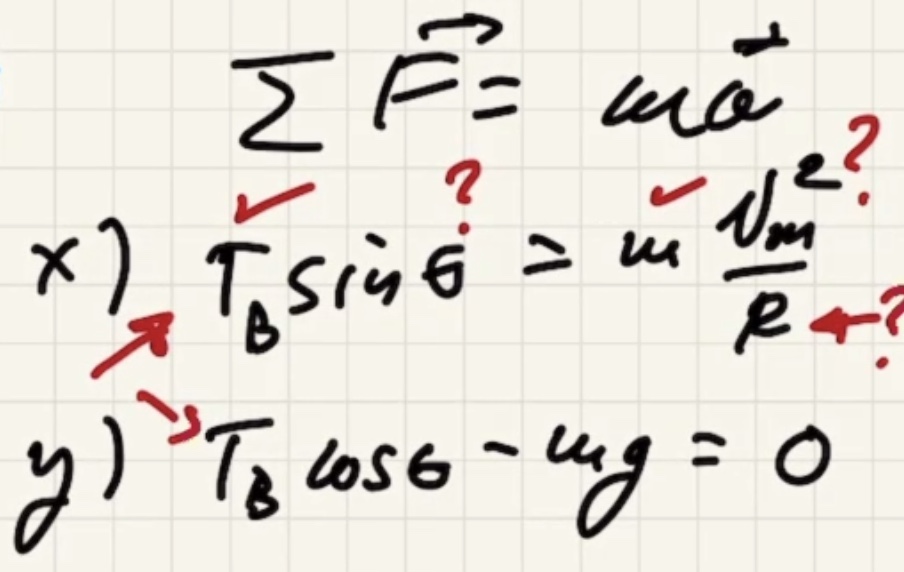 ∑ F⃗ = ma⃗
x) T_B sin θ = m V_m²/R
y) T_B cos θ - mg = 0